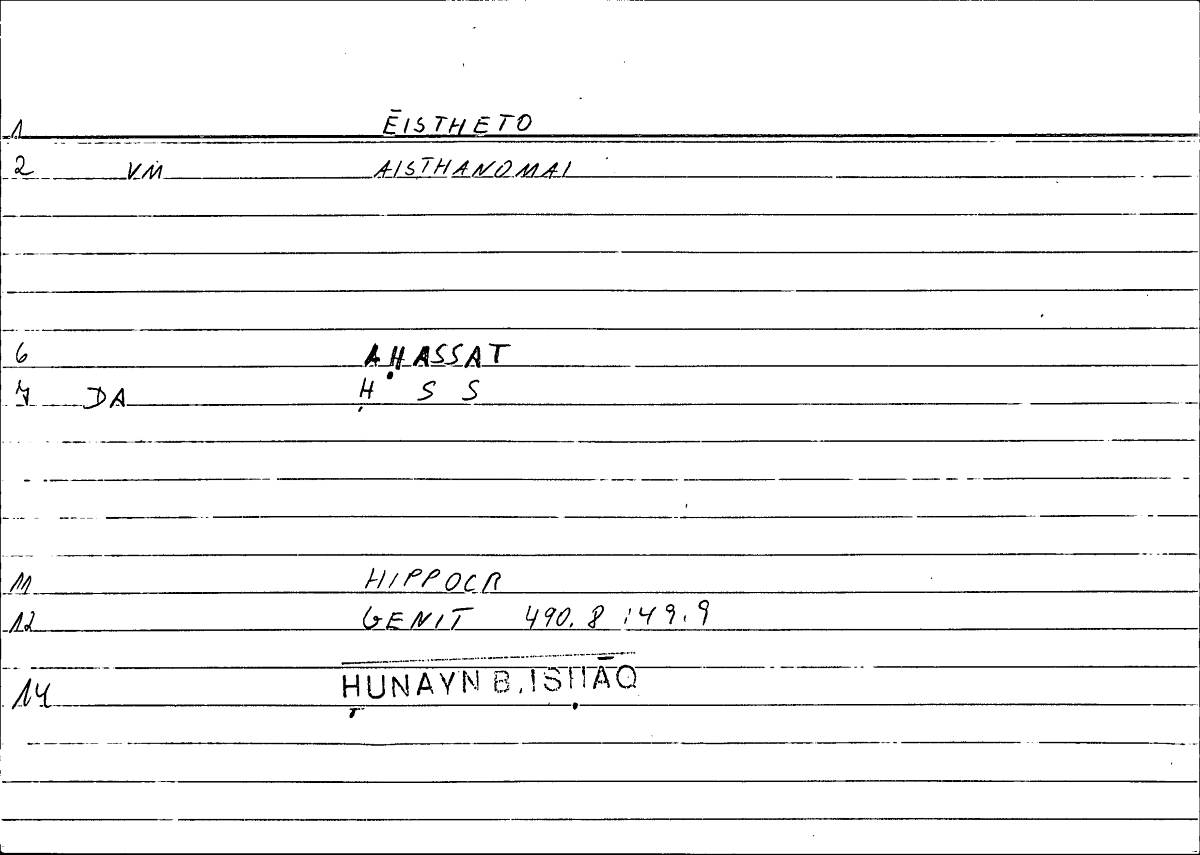 1 ĒISTHETO
2 VM AISTHANOMAI
6 AḤASSAT
7 DA Ḥ S S
11 HIPPOCR
12 GENIT 490.8 :49.9
14 ḤUNAYN B. ISḤĀQ